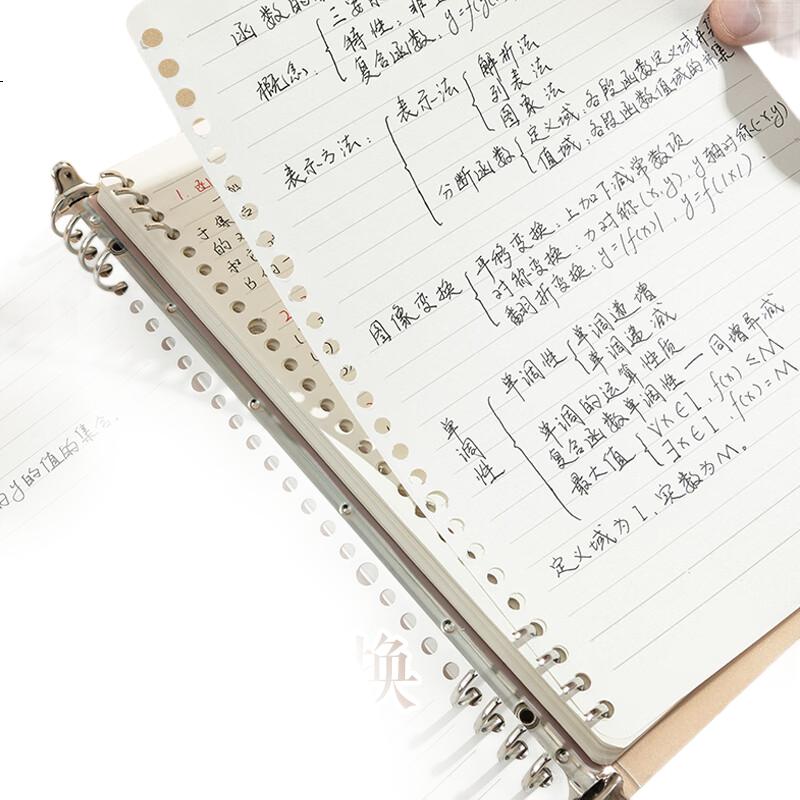 函数的
三要
概念：
特性：非
复合函数：y=f(g(
表示方法：
表示法
解析法
列表法
图象法
分断函数
定义域：各段函数定义域并集
值域：各段函数值域的并集
图像变换
平移变换：上加下减常数项
对称变换：为对称(x,y)，y轴对称(-x,y)
翻折变换：y=|f(x)|，y=f(|x|)．
单调性
单调性
单调递增
单调递减
单调的运算性质
复合函数单调性—同增异减
最大值
∀x∈I．f(x)≤M
∃x∈I．f(x)=M
定义域为I．实数为M。
1．函
于集合
的
和
2
的y的值的集合．
换